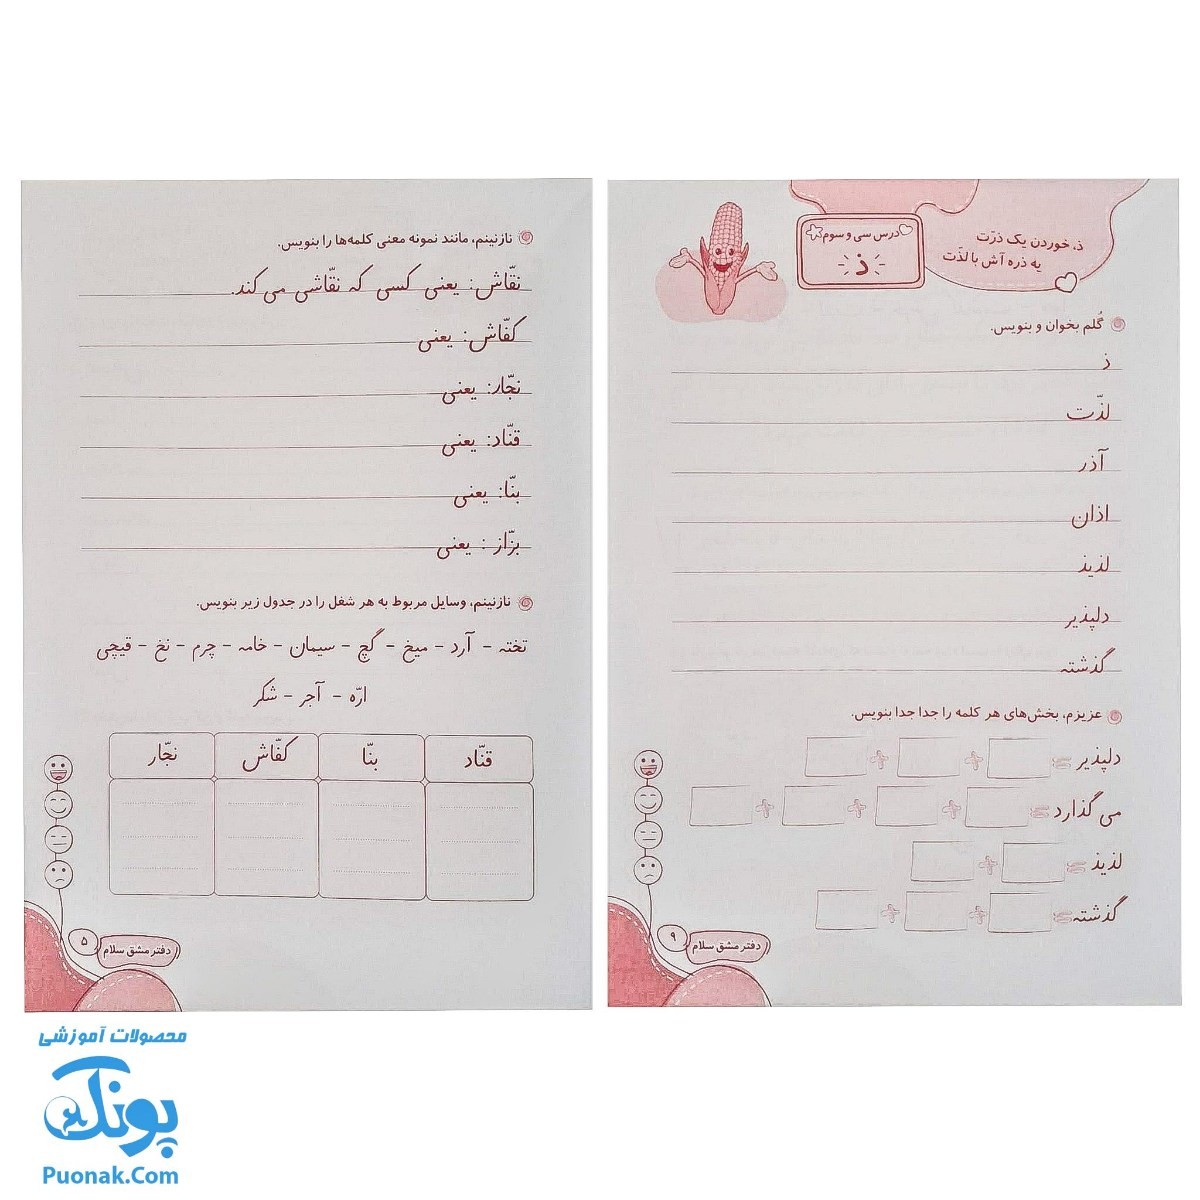 ذ، خوردن یک ذرّت
یه ذره آش با لذّت
درس سی و سوم
ذ
گُلم بخوان و بنویس.
ذ
لذّت
آذر
اذان
لذیذ
دلپذیر
گذشته
عزیزم، بخش‌های هر کلمه را جدا جدا بنویس.
دلپذیر = + +
می گذارد = + + +
لذیذ = +
گذشته = + +
دفتر مشق سلام ۹
نازنینم، مانند نمونه معنی کلمه‌ها را بنویس.
نقّاش: یعنی کسی که نقّاشی می کند.
کفّاش: یعنی
نجّار: یعنی
قنّاد: یعنی
بنّا: یعنی
بزّاز : یعنی
نازنینم، وسایل مربوط به هر شغل را در جدول زیر بنویس.
تخته - آرد - میخ - گچ - سیمان - خامه - چرم - نخ - قیچی
ارّه - آجر - شکر
قنّاد بنّا کفّاش نجّار
دفتر مشق سلام ۵
محصولات آموزشی
پونک
Puonak.Com